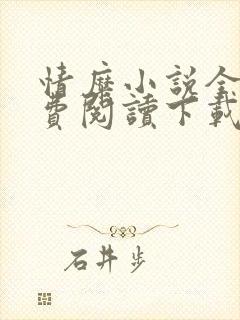 情歷小說全
費閱讀下載
石井步